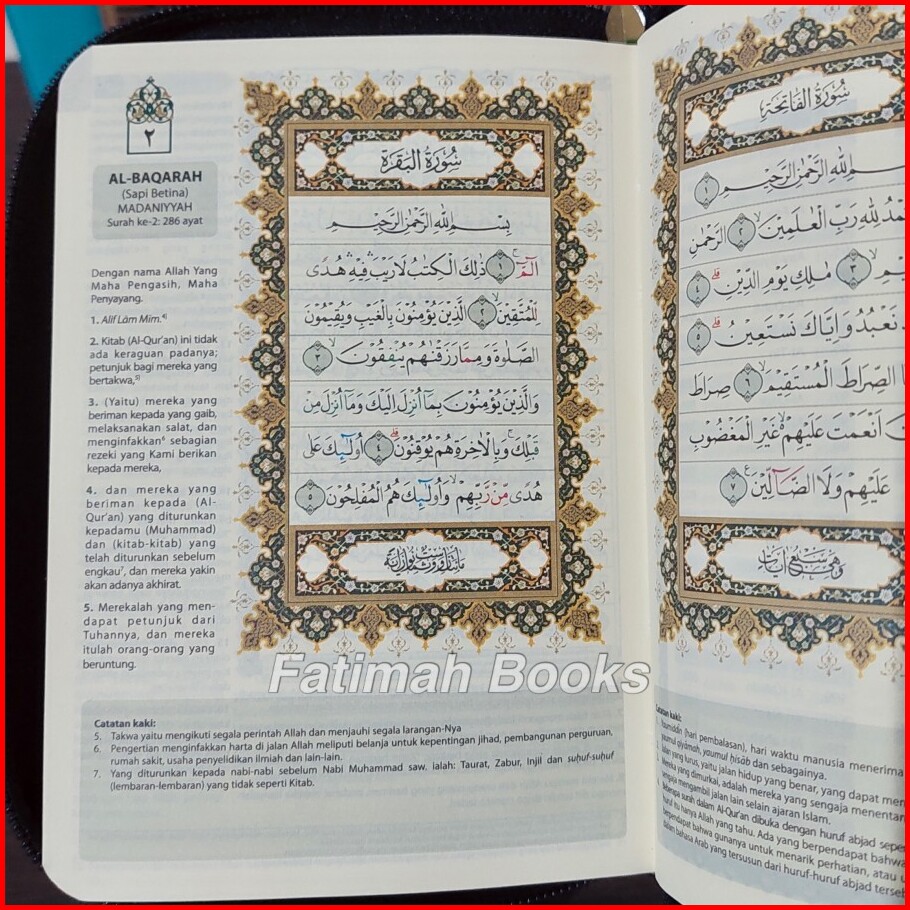 ٢
AL-BAQARAH
(Sapi Betina)
MADANIYYAH
Surah ke-2: 286 ayat
Dengan nama Allah Yang
Maha Pengasih, Maha
Penyayang.
1. Alif Lām Mīm.⁴⁾
2. Kitab (Al-Qur'an) ini tidak
ada keraguan padanya;
petunjuk bagi mereka yang
bertakwa,⁵⁾
3. (Yaitu) mereka yang
beriman kepada yang gaib,
melaksanakan salat, dan
menginfakkan⁶ sebagian
rezeki yang Kami berikan
kepada mereka,
4. dan mereka yang
beriman kepada (Al-
Qur'an) yang diturunkan
kepadamu (Muhammad)
dan (kitab-kitab) yang
telah diturunkan sebelum
engkau⁷, dan mereka yakin
akan adanya akhirat.
5. Merekalah yang men-
dapat petunjuk dari
Tuhannya, dan mereka
itulah orang-orang yang
beruntung.
سُوْرَةُ الْبَقَرَةِ
بِسْمِ اللّٰهِ الرَّحْمٰنِ الرَّحِيْمِ
الۤمّۤ ۚ ١ ذٰلِكَ الْكِتٰبُ لَا رَيْبَ ۛ فِيْهِ ۛ هُدًى
لِّلْمُتَّقِيْنَۙ ٢ الَّذِيْنَ يُؤْمِنُوْنَ بِالْغَيْبِ وَيُقِيْمُوْنَ
الصَّلٰوةَ وَمِمَّا رَزَقْنٰهُمْ يُنْفِقُوْنَۙ ٣
وَالَّذِيْنَ يُؤْمِنُوْنَ بِمَآ اُنْزِلَ اِلَيْكَ وَمَآ اُنْزِلَ مِنْ
قَبْلِكَۚ وَبِالْاٰخِرَةِ هُمْ يُوْقِنُوْنَۗ ٤ اُولٰۤىِٕكَ عَلٰى
هُدًى مِّنْ رَّبِّهِمْۙ وَاُولٰۤىِٕكَ هُمُ الْمُفْلِحُوْنَ ٥
Catatan kaki:
5. Takwa yaitu mengikuti segala perintah Allah dan menjauhi segala larangan-Nya
6. Pengertian menginfakkan harta di jalan Allah meliputi belanja untuk kepentingan jihad, pembangunan perguruan,
rumah sakit, usaha penyelidikan ilmiah dan lain-lain.
7. Yang diturunkan kepada nabi-nabi sebelum Nabi Muhammad saw, ialah: Taurat, Zabur, Injil dan ṣuḥuf-ṣuḥuf
(lembaran-lembaran) yang tidak seperti Kitab.
Fatimah Books
سُوْرَةُ الْفَاتِحَةِ
اللّٰهِ الرَّحْمٰنِ الرَّحِيْمِ ١
لِلّٰهِ رَبِّ الْعٰلَمِيْنَۙ ٢ الرَّحْمٰنِ
٣ مٰلِكِ يَوْمِ الدِّيْنِۗ ٤
نَعْبُدُ وَاِيَّاكَ نَسْتَعِيْنُۗ ٥
الصِّرَاطَ الْمُسْتَقِيْمَۙ ٦ صِرَاطَ
اَنْعَمْتَ عَلَيْهِمْ ۙ غَيْرِ الْمَغْضُوْبِ
عَلَيْهِمْ وَلَا الضَّاۤلِّيْنَ ٧
وَهِيَ سَبْعُ اٰيَاتٍ
Catatan kaki:
(hari pembalasan), hari waktu manusia menerima
yaumul qiyāmah, yaumul ḥisāb dan sebagainya.
Jalan yang lurus, yaitu jalan hidup yang benar, yang dapat
Mereka yang dimurkai, adalah mereka yang sengaja
mengambil jalan lain selain ajaran Islam.
Beberapa surah dalam Al-Qur'an dibuka dengan huruf abjad
huruf itu hanya Allah yang tahu. Ada yang berpendapat
berpendapat bahwa gunanya untuk menarik perhatian, atau
dalam bahasa Arab yang tersusun dari huruf-huruf abjad